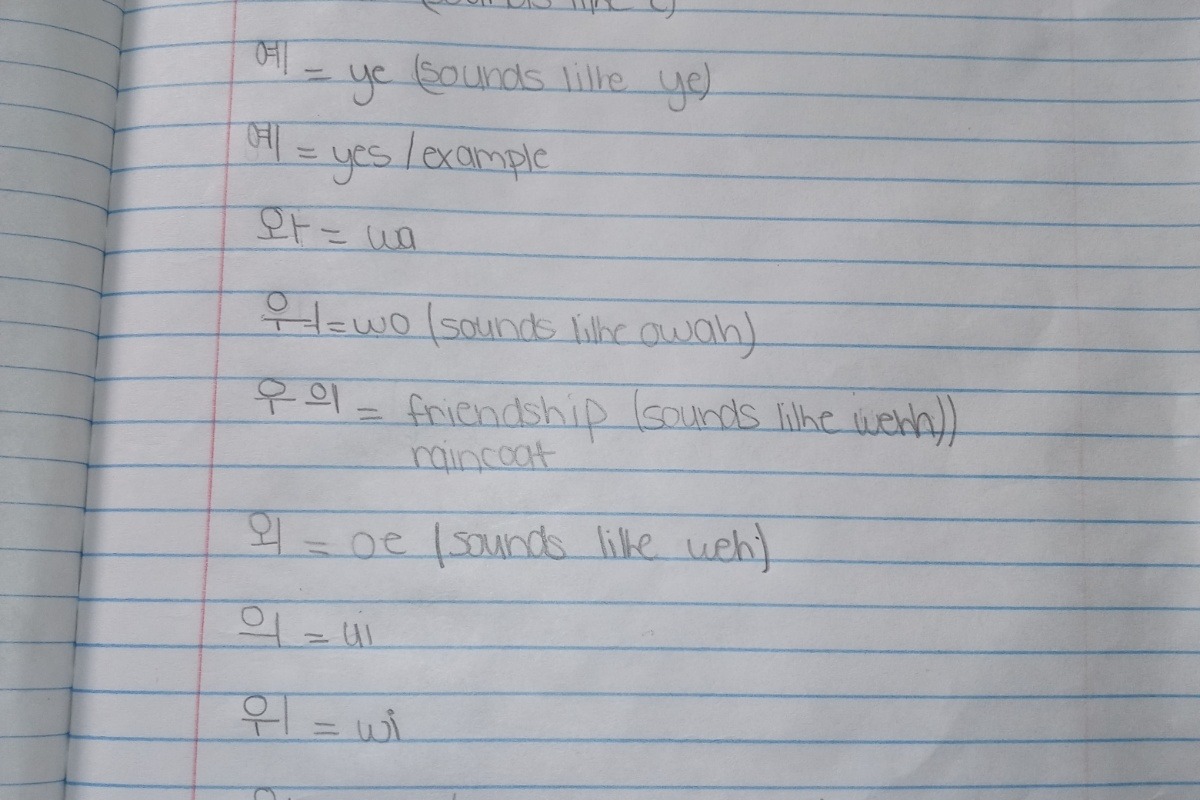 예 = ye (sounds like ye)
예 = yes / example
와 = wa
워 = wo (sounds like owah)
우의 = friendship (sounds like wehh))
raincoat
외 = oe (sounds like weh)
의 = ui
위 = wi